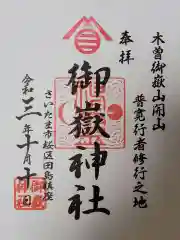 木曽御嶽山開山
普寛行者修行之地
奉拝
御嶽神社
さいたま市桜区田島鎮座
令和三年十月十日